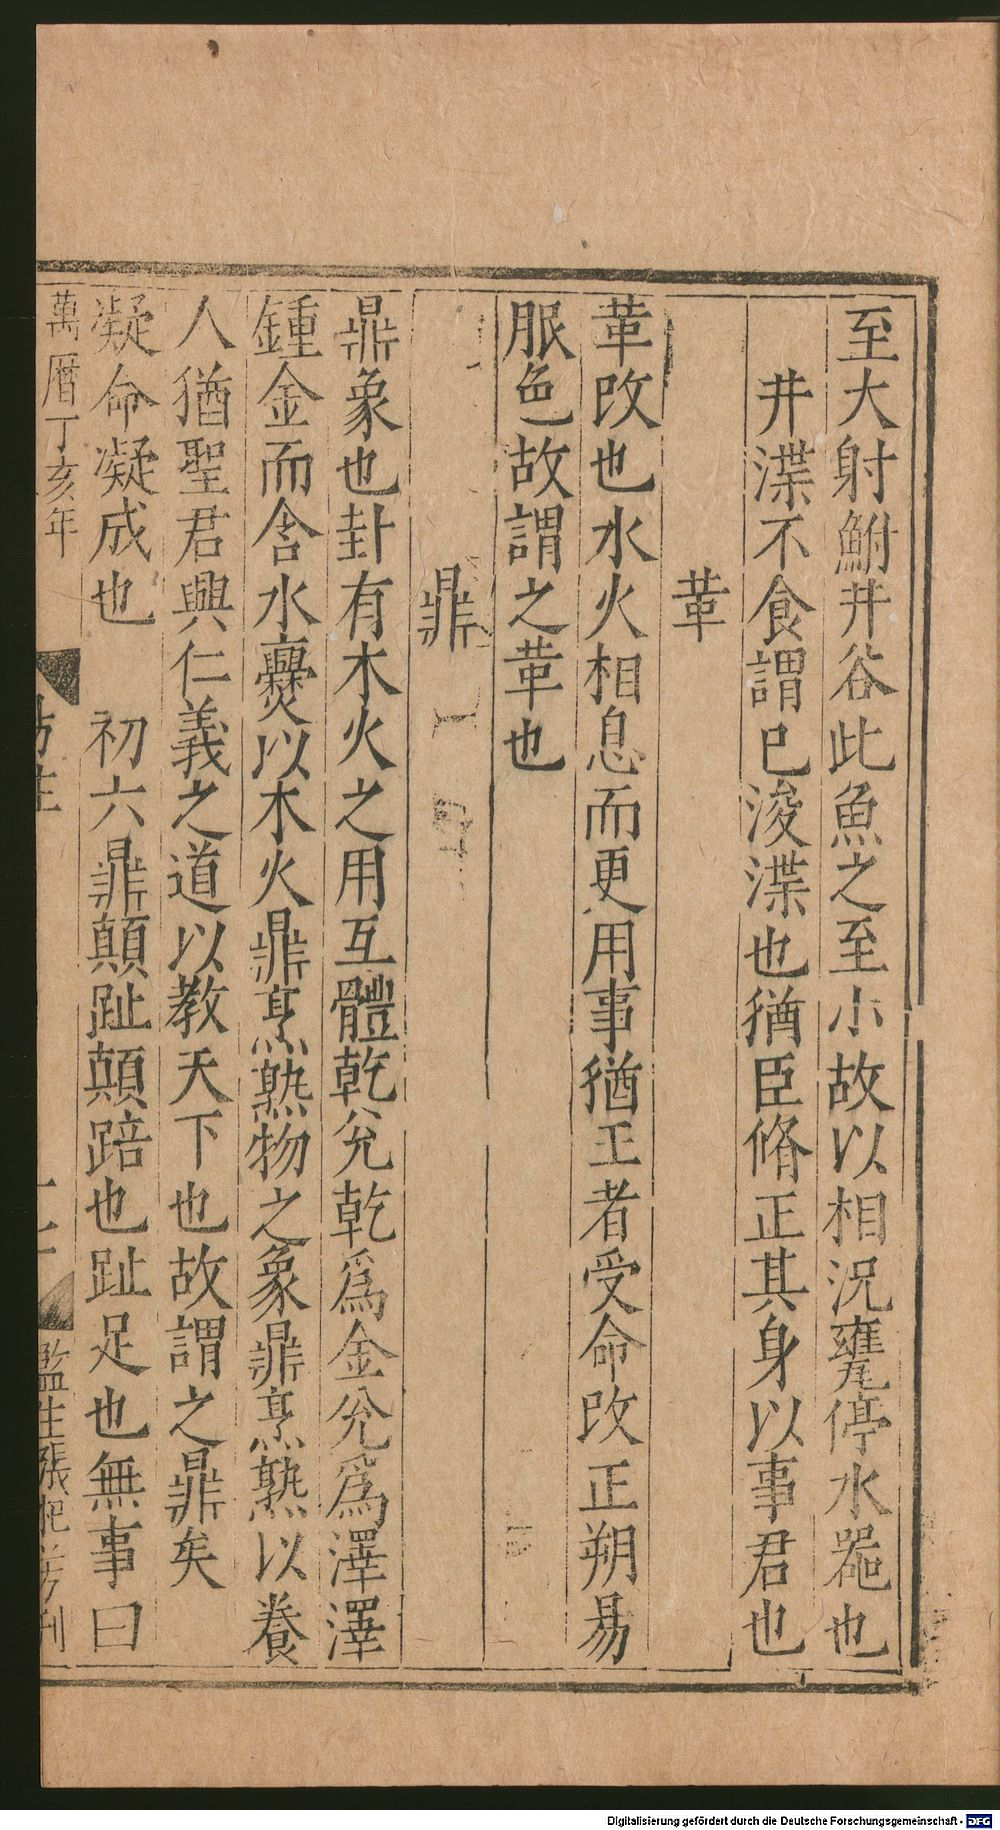 至大射鮒井谷此魚之至小故以相況甕停水器也
井渫不食謂已浚渫也猶臣脩正其身以事君也
革
革改也水火相息而更用事猶王者受命改正朔易
服色故謂之革也
鼎
鼎象也卦有木火之用互體乾兊乾爲金兊爲澤澤
鍾金而含水爨以木火鼎烹熟物之象鼎烹熟以養
人猶聖君興仁義之道以教天下也故謂之鼎矣
凝命凝成也 初六鼎顛趾顛踣也趾足也無事曰
萬曆丁亥年
監生張
刊
Digitalisierung gefördert durch die Deutsche Forschungsgemeinschaft - DFG